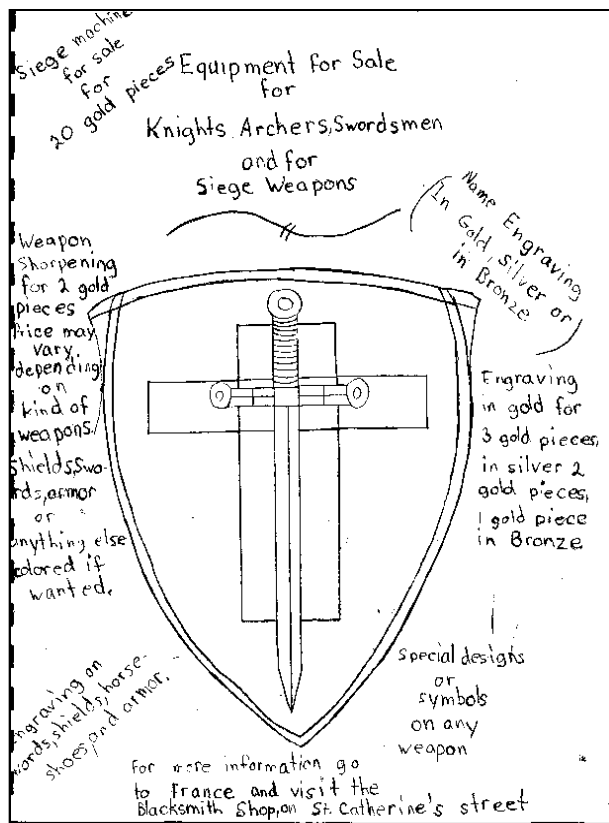 Siege machine
for sale
for
20 gold pieces
Equipment for Sale
for
Knights Archers, Swordsmen
and for
Siege Weapons
Name Engraving
In Gold, Silver or
in Bronze
Weapon
Sharpening
for 2 gold
pieces
Price may
vary,
depending
on
kind of
weapons.
Shields, Swo-
rds, armor
or
anything else
colored if
wanted.
Engraving
in gold for
3 gold pieces,
in silver 2
gold pieces,
1 gold piece
in Bronze
Engraving on
swords, shields, horse-
shoes, and armor.
Special designs
or
symbols
on any
weapon
For more information go
to France and visit the
Blacksmith Shop, on St. Catherine's street